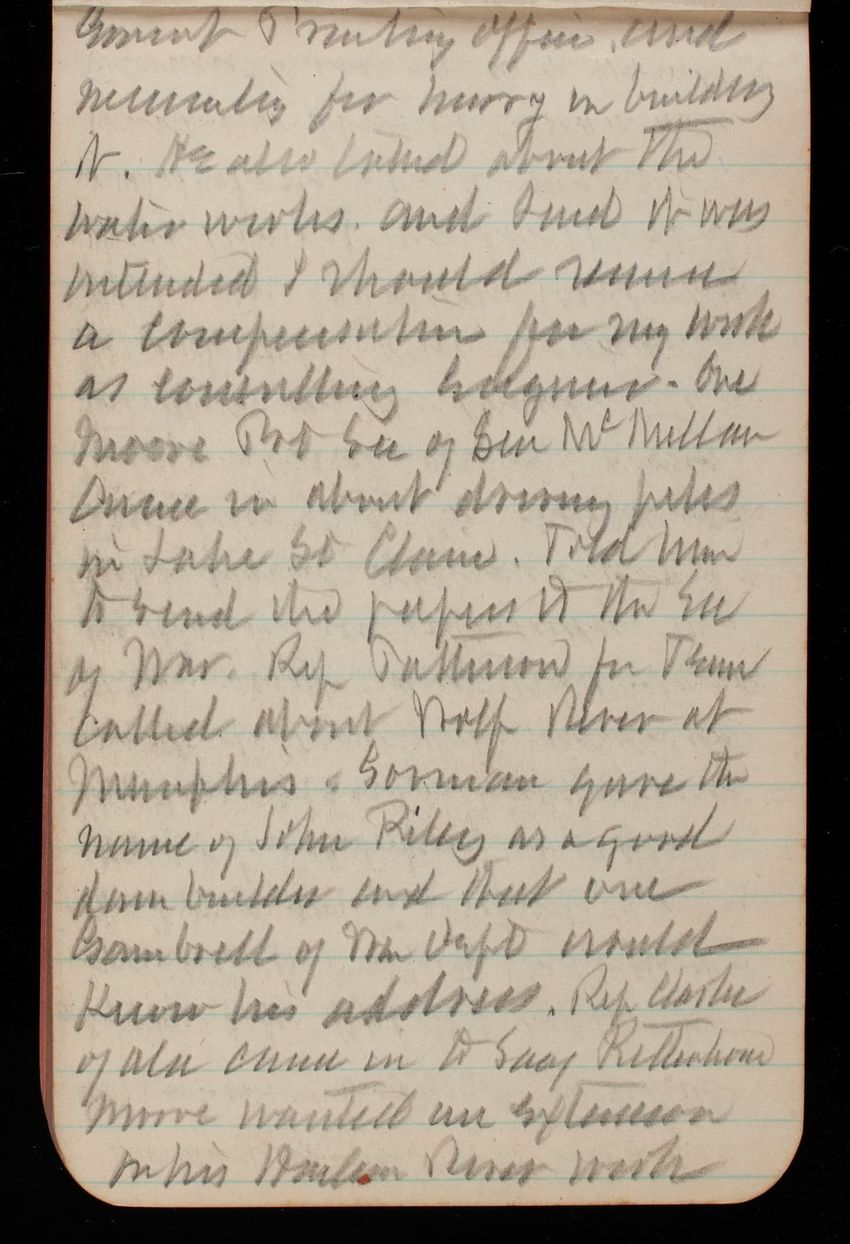 Govmt Printing Office, and
necessity for hurry in building
it. He also talked about the
water works. and said it was
intended I should receive
a compensation for my work
as consulting Engineer. One
Moore Prt Sec of Sen McMillan
came in about driving piles
in Lake St Claire. Told him
to send the papers to the Sec
of War. Rep Patterson for Tenn
called about Wolf River at
Memphis. Gorman gave the
name of John Riley as a good
dam builder and that one
Gambrell of War Dept would
know his address. Rep Clarke
of Ala came in to say Rittenhouse
Moore wanted an extension
on his Harlem River work